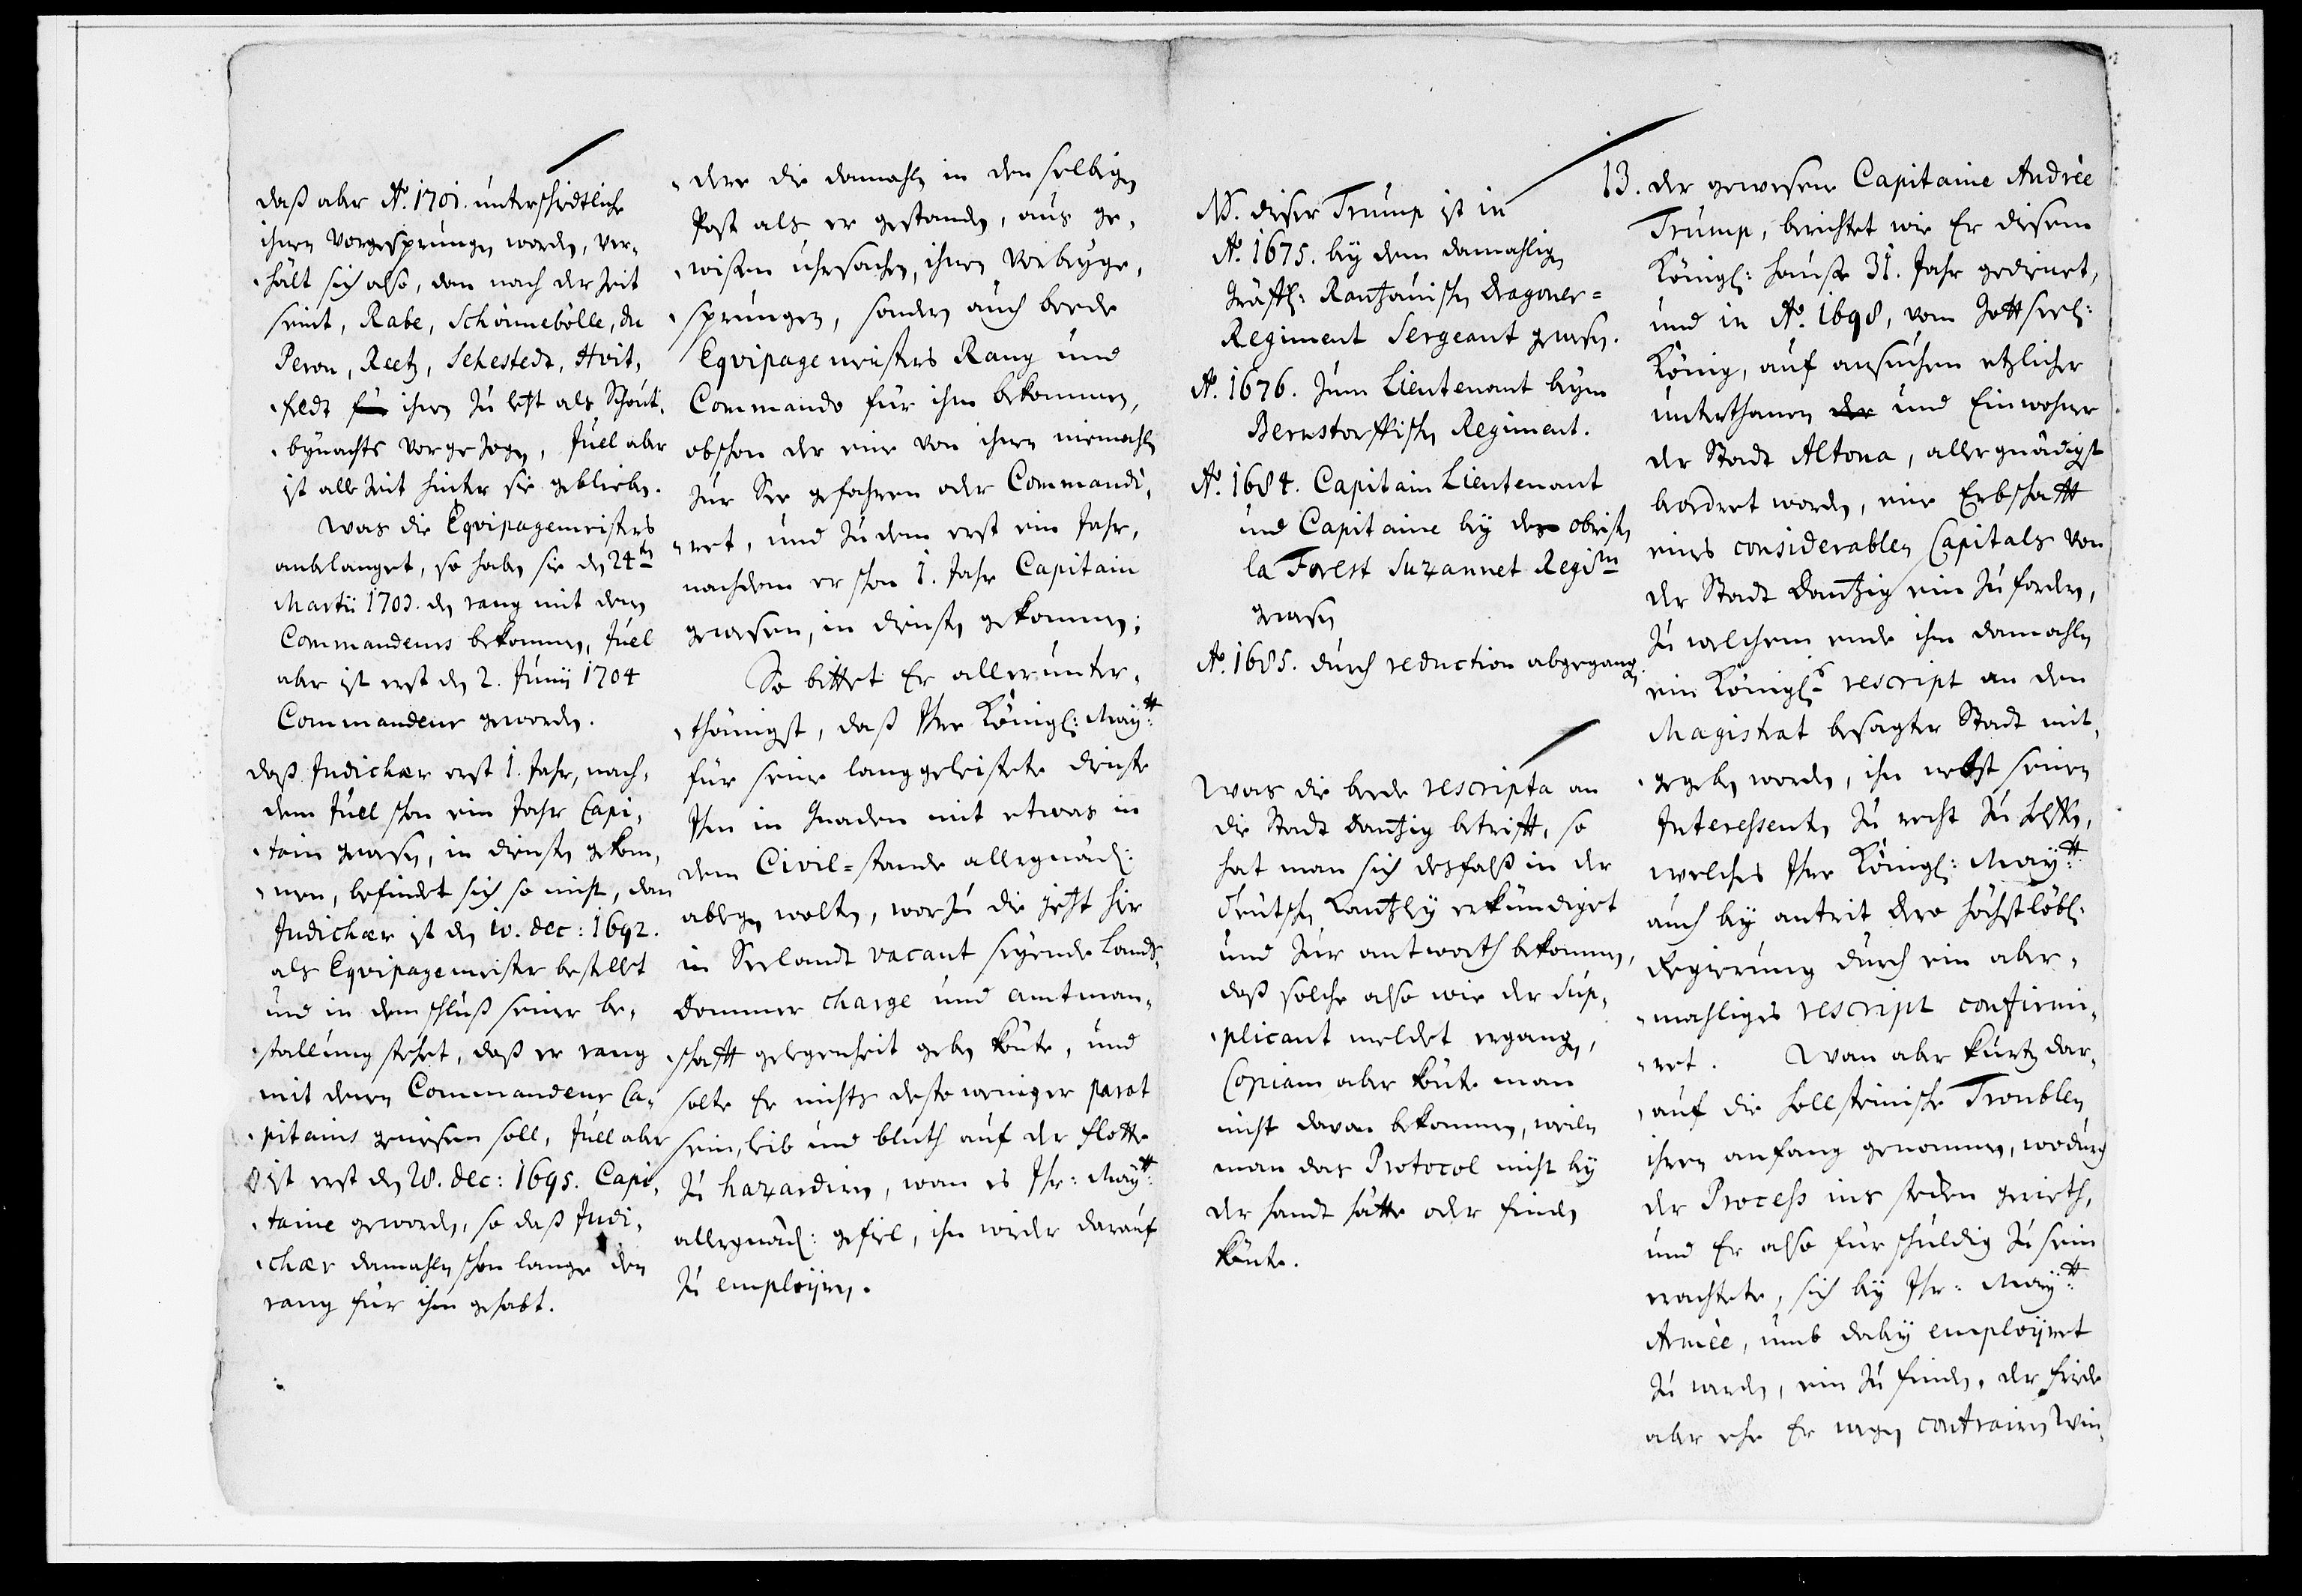 daß aber Aº. 1701. unterschiedtliche
ihnen vorgesprungen worden, ver-
hält sich also, dan nach der Zeit
seint, Rabe, Schönnebölle, du
Peron, Reetz, Sehestedt, Hvit,
feldt für ihnen zu letzt als Schout,
bynachts vorgezogen, Juel aber
ist alle Zeit hinter sie geblieben.
Was die Eqvipagemeisters
anbelanget, so haben sie den 24ten
Martii 1703. den rang mit denen
Commandeurs bekommen, Juel
aber ist erst den 2. Junij 1704
Commandeur geworden.
daß Judichær erst 1. Jahr, nach,
dem Juel schon ein Jahr Capi,
tain gewesen, in diensten gekom,
men, befindet sich so nicht, dan
Judichær ist den 10. dec: 1692.
als Eqvipagemeister bestellet
und in dem schluß seiner be,
stallung stehet, daß er rang
mit denen Commandeur Ca,
pitains geniesen soll, Juel aber
ist erst den 28. dec: 1695. Capi,
taine geworden, so daß Judi,
chær damahlen schon lange den
rang für ihm gehabt.
dere die damahln in den selbigen
Post als er gestanden, aus ge,
wißen uhrsachen, ihnen vorbeyge,
sprungen, sondern auch beede
Eqvipagemeisters Rang und
Commando für ihm bekommen,
obschon der eine von ihnen niemahln
zur See gefahren oder Commandi,
ret, und zu dem erst ein Jahr,
nachdem er schon 1. Jahr Capitain
gewesen, in diensten gekommen;
So bittet Er allerunter,
thänigst, daß Ihre Königl: Maytt:
für seine langgeleistete dienste
Ihm in Gnaden mit etwas in
dem Civil-stande allergnäd:
ablegen wolten, worzu die jetzt hier
in Seelandt vacant seyende Lands,
dommer charge und amtman,
schafft gelegenheit geben könte, und
solte Er nichts desto weniger parat
sein, leib und bluth auf der flotte
zu hazardiren, wan es Ihr: Maytt:
allergnäd: gefiel, ihn wieder darauf
zu employren.
NB. dieser Trump ist in
Aº. 1675. bey dem damahligen
Gräffl: Rantzauischen Dragoner-
Regiment Sergeant gewesen.
Aº. 1676. zum Lieutenant beym
Bernstorffischen Regiment.
Aº. 1684. Capitain Lieutenant
und Capitaine bey des obristen
la Forest Suzannet Regim
gewesen
Aº. 1685. durch reduction abgegangen
Was die beede rescripta an
die Stadt Dantzig betrifft, so
hat man sich desfalß in der
Teutschen Cantzley erkündiget
und zur antworth bekommen,
daß solche also wie der Sup,
plicant meldet ergangen,
Copiam aber könte man
nicht davon bekommen, weiln
man das Protocol nicht bey
der handt hätte oder finden
könte.
13. der gewesene Capitaine Andrèe
Trump, berichtet wie Er diesem
Königl: hause 31. Jahr gedienet,
und in Aº. 1698, vom Gottseel:
König, auf ansuchen etzlicher
unterthanen der und Einwohner
der Stadt Altona, allergnädigst
beordret worden, eine Erbschafft
eines considerablen Capitals von
der Stadt Dantzig ein zu fordern,
zu welchem ende ihm damahln
ein Königl: rescript an den
Magistrat besagter Stadt mit,
gegeben worden, ihn nebst seinen
Interessenten zu recht zu helffen,
welches Ihre Königl: Maytt:
auch bey antrit dero höchstlöbl:
Regierung durch ein aber,
mahliges rescript confirmi,
ret. Wan aber kurtz dar,
auf die hollsteinische Troublen
ihren anfang genommen, wodurch
der Process ins stecken gerieth,
und Er also für schuldig zu sein
erachtete, sich bey Ihr: Maytt:
Armèe, umb dabey employret
zu werden, ein zu finden, der friede
aber ehe Er wegen contrairen Win,